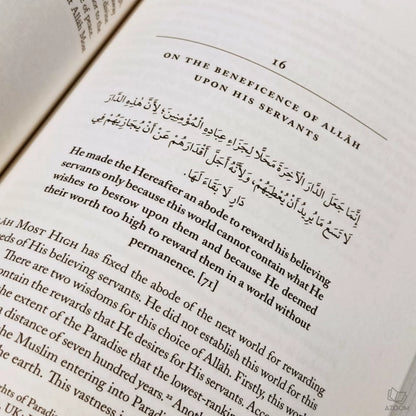 of peace.
Allah Most
16
ON THE BENEFICENCE OF ALLĀH
UPON HIS SERVANTS
إِنَّمَا جَعَلَ الدَّارَ الْآخِرَةَ مَحَلًّا لِجَزَاءِ عِبَادِهِ الْمُؤْمِنِينَ؛ لِأَنَّ هَذِهِ الدَّارَ
لَا تَسَعُ مَا يُرِيدُ أَنْ يُعْطِيَهُمْ، وَلِأَنَّهُ أَجَلَّ أَقْدَارَهُمْ عَنْ أَنْ يُجَازِيَهُمْ فِي
دَارٍ لَا بَقَاءَ لَهَا.
He made the Hereafter an abode to reward his believing
servants only because this world cannot contain what He
wishes to bestow upon them and because He deemed
their worth too high to reward them in a world without
permanence. [71]
ĀH MOST HIGH has fixed the abode of the next world for rewarding
eds of His believing servants. He did not establish this world for this
There are two wisdoms for this choice of Allāh. Firstly, this world
ontain the rewards that He desires for His servants. According
the extent of the Paradise that the lowest-rank
a distance of seven hundred years. Anot
the Muslim entering into Parad
the earth. This vastness i
ghts of Paradise
UK:
AZOOM